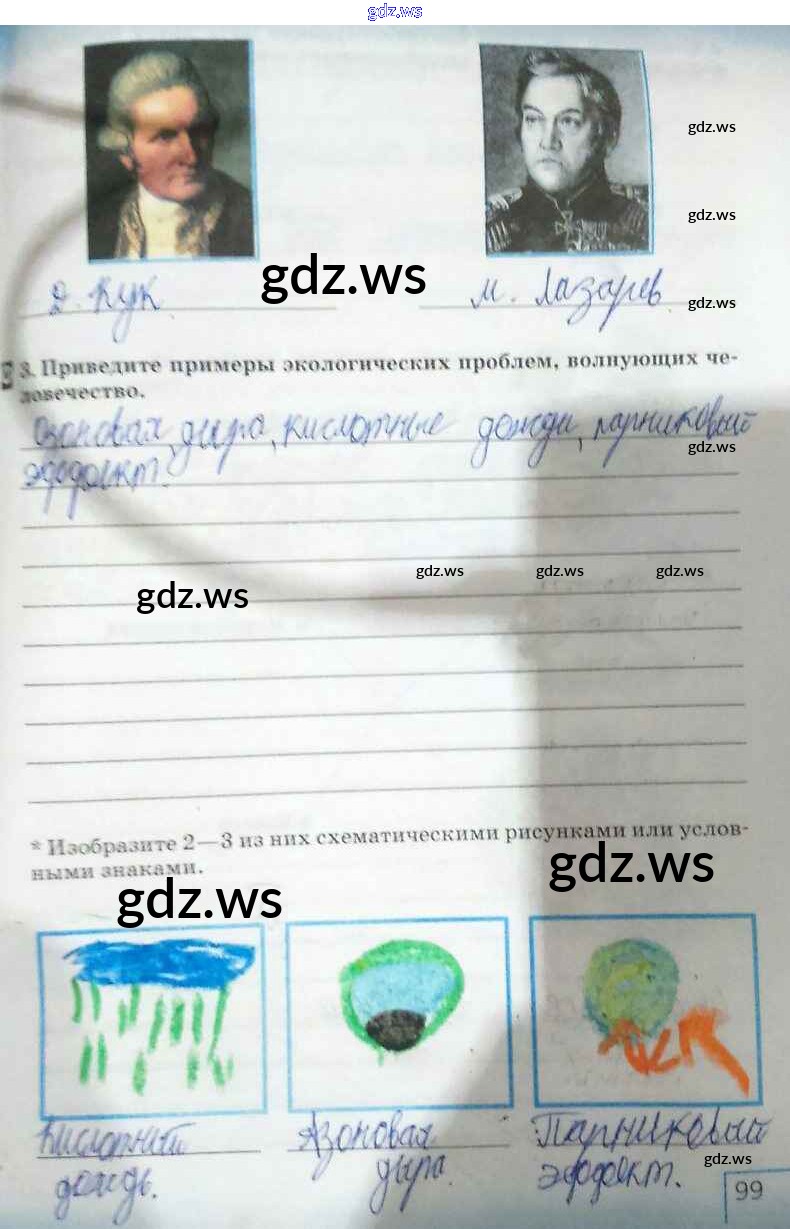 gdz.ws
gdz.ws
gdz.ws
gdz.ws
Д. Кук
М. Лазарев
gdz.ws
3. Приведите примеры экологических проблем, волнующих че-
ловечество.
Озоновая дыра, кислотные дожди, парниковый
gdz.ws
эффект.
gdz.ws gdz.ws gdz.ws
gdz.ws
* Изобразите 2—3 из них схематическими рисунками или услов-
ными знаками.
gdz.ws
gdz.ws
Кислотный
дождь.
Азоновая
дыра.
Парниковый
эффект.
gdz.ws
99